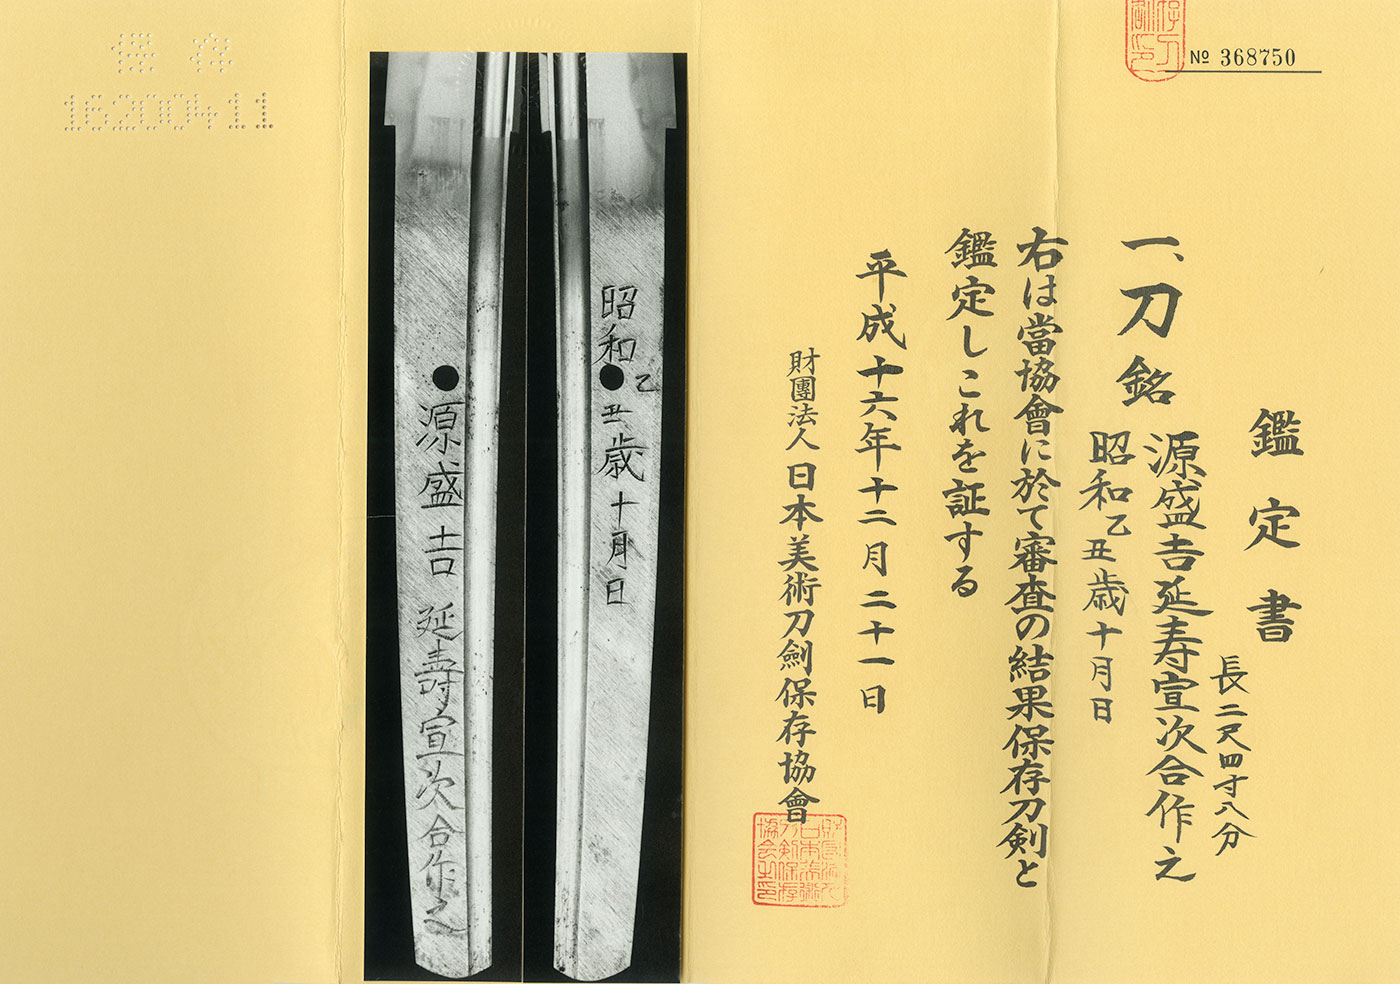 № 368750
鑑定書
長二尺四寸八分
一、刀 銘 源盛吉延寿宣次合作之
昭和乙丑歳十月日
右は當協會に於て審査の結果保存刀剣と
鑑定しこれを証する
平成十六年十二月二十一日
財團法人日本美術刀劍保存協會
昭和乙丑歳十月日
源盛吉 延壽宣次合作之
保存
16200411